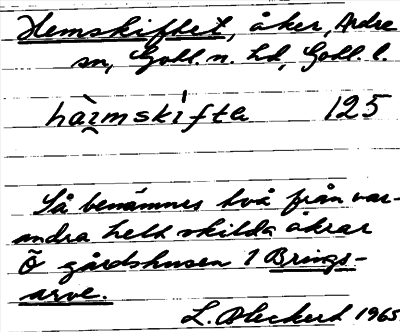 Hemskiftet, åker, Ardre
sn, Gotl. n. hd, Gotl. l.
hàimskìfta 125
Så benämnes två från var-
andra helt skilda åkrar
Ö gårdshusen 1 Brings-
arve.
L. Bleckert 1965